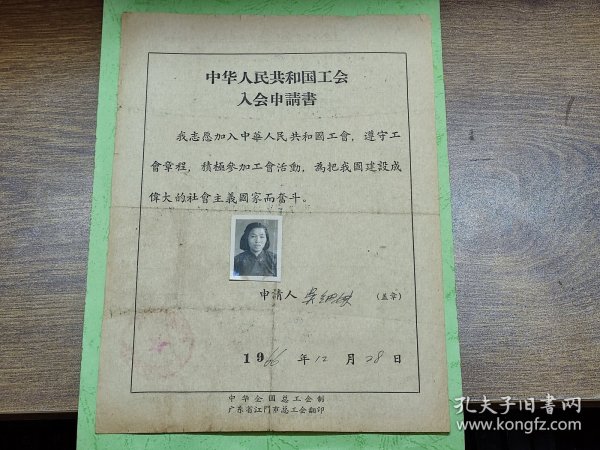 中华人民共和国工会
入会申請書
我志愿加入中華人民共和國工會，遵守工
會章程，積極參加工會活動，為把我國建設成
偉大的社會主義國家而奮斗。
申請人 (盖章)
1966 年 12 月 28 日
中华全国总工会制
广东省江门市总工会翻印
孔夫子旧书网
www.kongfz.com